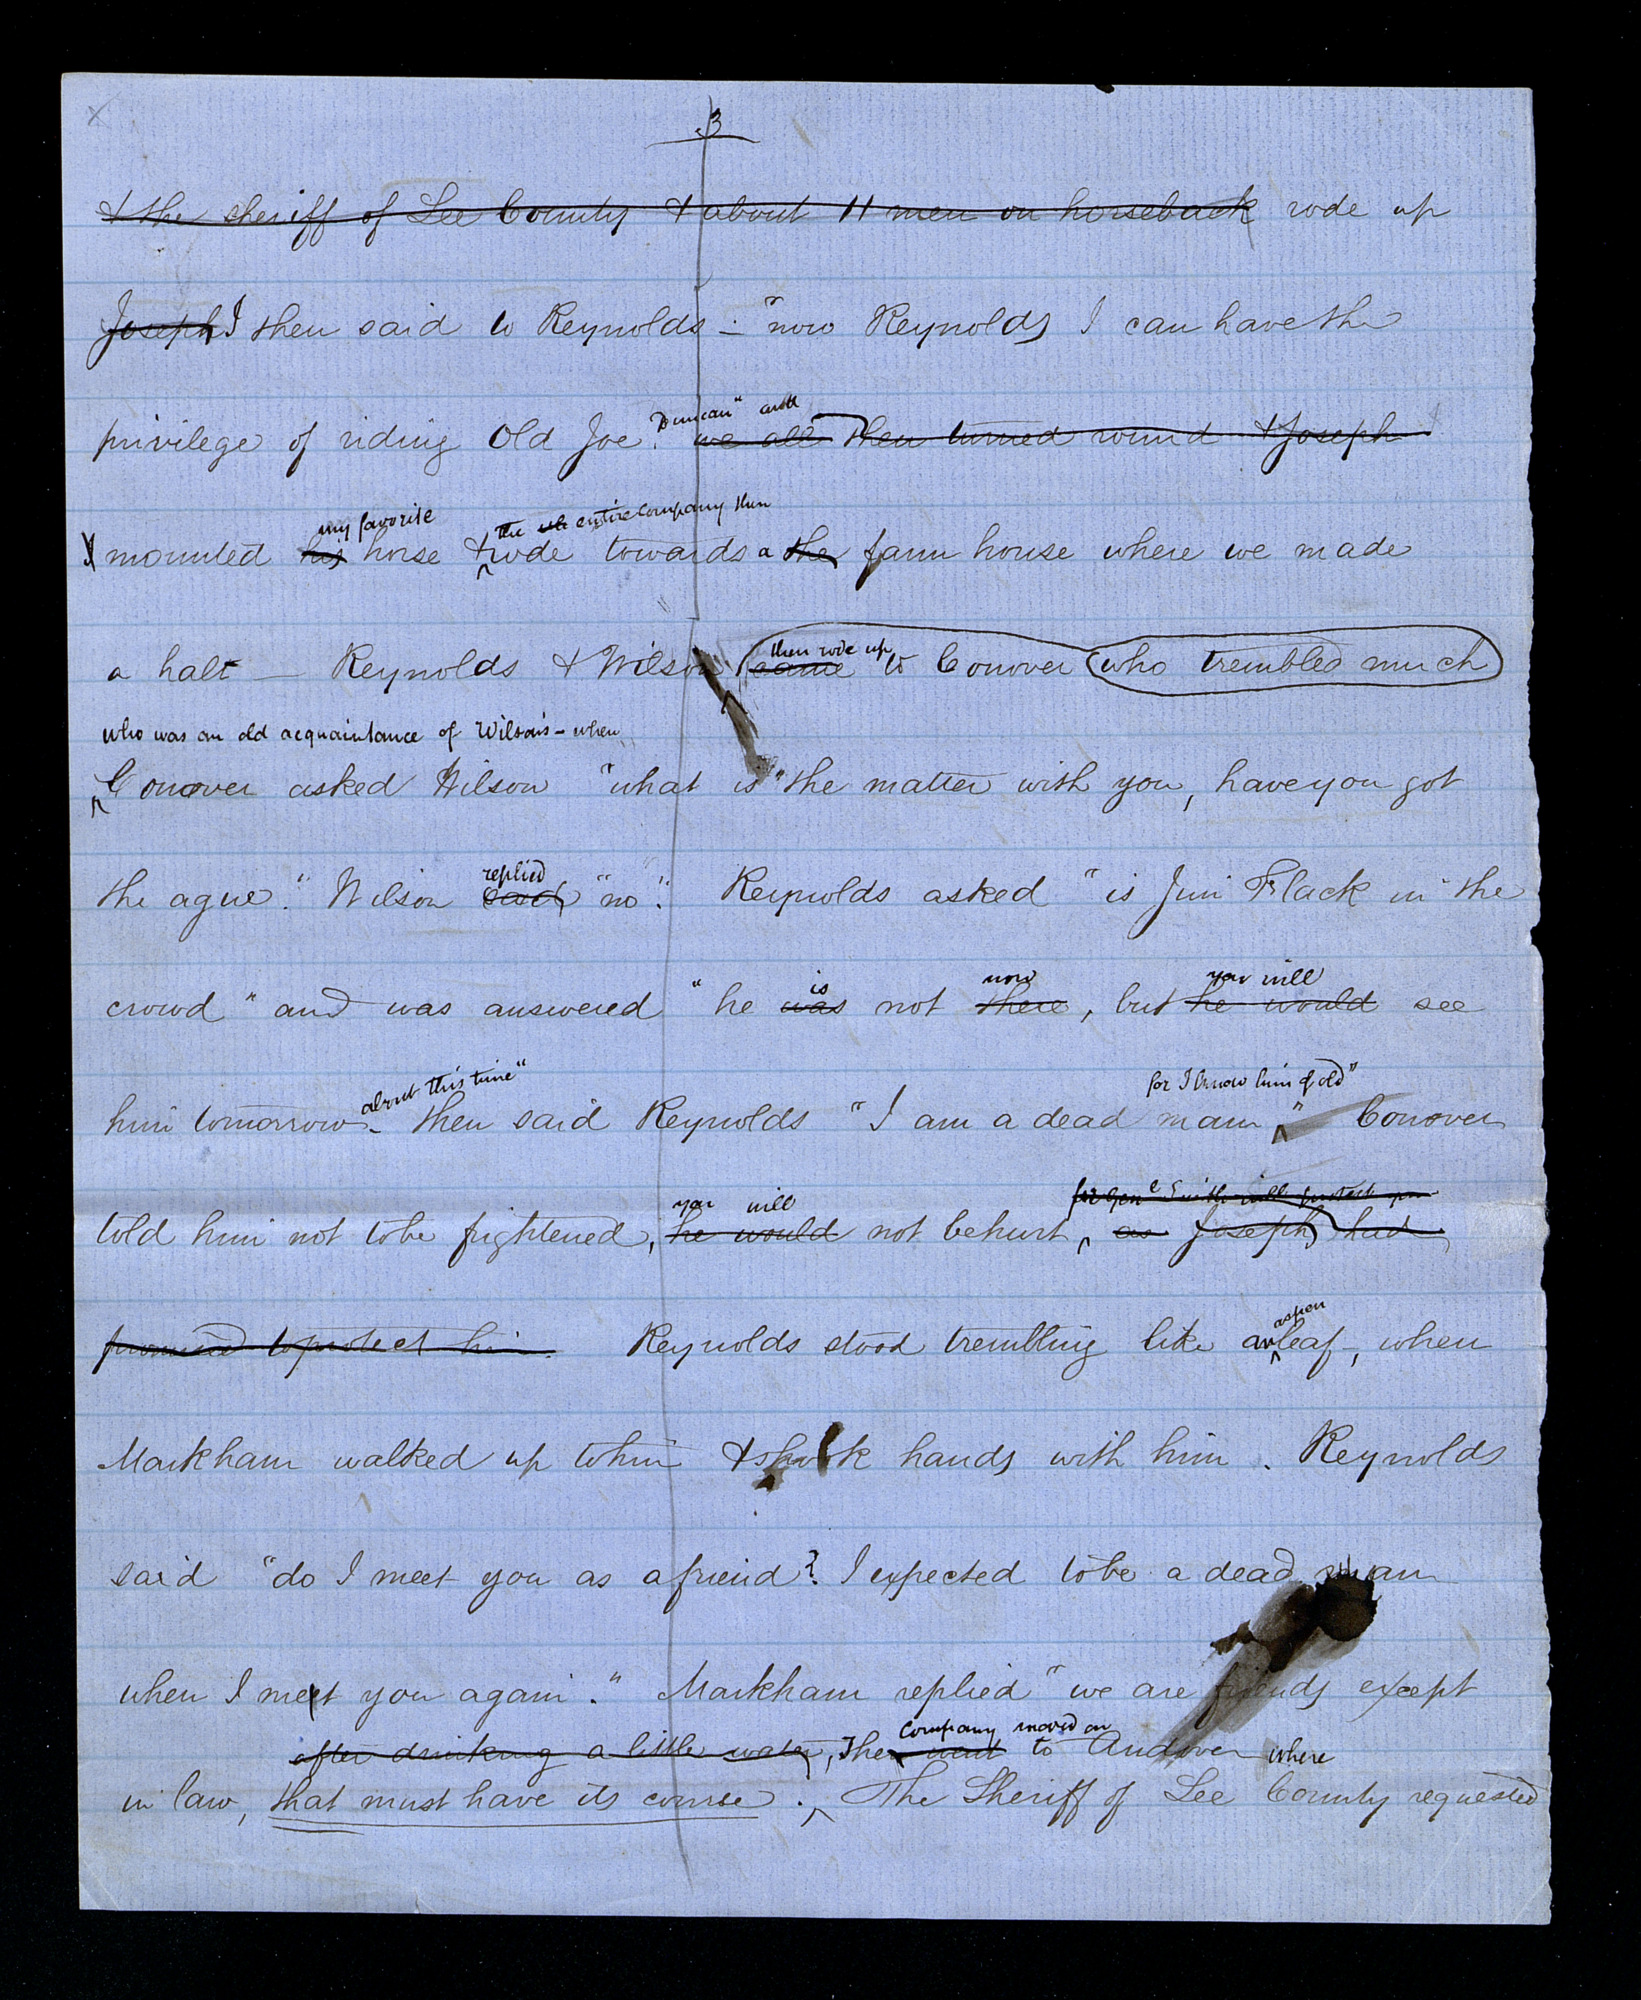 3
& the sheriff of Lee County & about 11 men on horseback rode up
Joseph I then said to Reynolds — "now Reynolds I can have the
Duncan" and
privilege of riding Old Joe we all then turned round & Joseph
my favorite the entire company then
I mounted his horse & rode towards a the farm house where we made
then rode up
a halt — Reynolds & Wilson came to Conover who trembled much
who was an old acquaintance of Wilson's — when
Conover asked Wilson "what is" the matter with you, have you got
replied
the ague." Wilson said "no". Reynolds asked "is Jim Flack in the
is now you will
crowd" and was answered "he was not there, but he would see
about this time" for I know him of old"
him tomorrow — then said Reynolds "I am a dead man" Conover
you will for Genl Smith will protect you
told him not to be frightened, he would not be hurt, as Joseph had
aspen
promised to protect him. Reynolds stood trembling like an leaf —, when
Markham walked up to him & shook hands with him. Reynolds
said "do I meet you as a friend? I expected to be a dead man
when I met you again." Markham replied "we are friends except
company moved on
after drinking a little water, The went to Andover where
in law, that must have its course. The Sheriff of Lee County requested